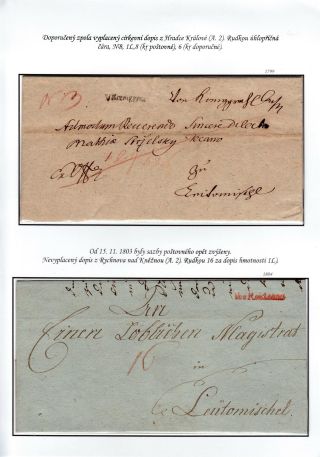 Doporučený zpola vyplacený církevní dopis z Hradce Králové (A. 2). Rudkou úhlopříčná
čára, NB, 1L,8 (kr poštovné), 6 (kr doporučné).
1799
NB
Von Königgratz
Admodum Reverendo
Mathia
Decano
Ex Offo
zu
Leitomischl
Od 15. 11. 1803 byly sazby poštovného opět zvýšeny.
Nevyplacený dopis z Rychnova nad Kněžnou (A. 2). Rudkou 16 za dopis hmotnosti 1L).
1804
von Reichenau
Einen Löblichen Magistrat
16
in
Leütomischel.